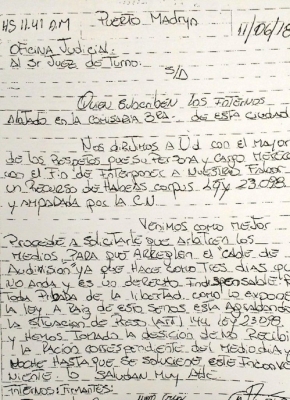 HS 11.41 AM PUERTO MADRYN 11/06/18
OFICINA JUDICIAL.
Al SR JUEZ DE TURNO.
S/D
QUIEN SUBSCRIBEN LOS INTERNOS
ALOJADO EN LA COMISARIA 3RA DE ESTA CIUDAD
NOS DIRIJIMOS A Ud CON EL MAYOR
DE LOS RESPETOS QUE SU PERSONA Y CARGO MERECE
CON EL FIN DE INTERPONER A NUESTRO FAVOR
UN RECURSO DE HABEAS CORPUS LEY 23.098
Y AMPARADA POR LA C.N.
VENIMOS COMO MEJOR
PROCEDE A SOLICITARLE QUE ARBITREN LOS
MEDIOS PARA QUE ARREGLEN EL "CABLE DE
AUDIVISION" YA QUE HACE COMO TRES DIAS QUE
NO ANDA Y ES UN DERECHO INDISPENSABLE P
TODA PRIBADA DE LA LIBERTAD. COMO LO EXPONE
LA LEY A RAIZ DE ESO SENOS ESTA AGRABANDO
LA SITUACION DE PRESO (ART) 144 LEY 23.098
Y HEMOS TOMADO LA DESICION DE NO RECIBI
LA RACION CORRESPONDIENTE DEL MEDIO DIA Y
NOCHE HASTA QUE SE SOLUCIONE ESTE INCONVE
NIENTE. LO SALUDAN MUY ATTE
INTERNOS: FIRMANTES: